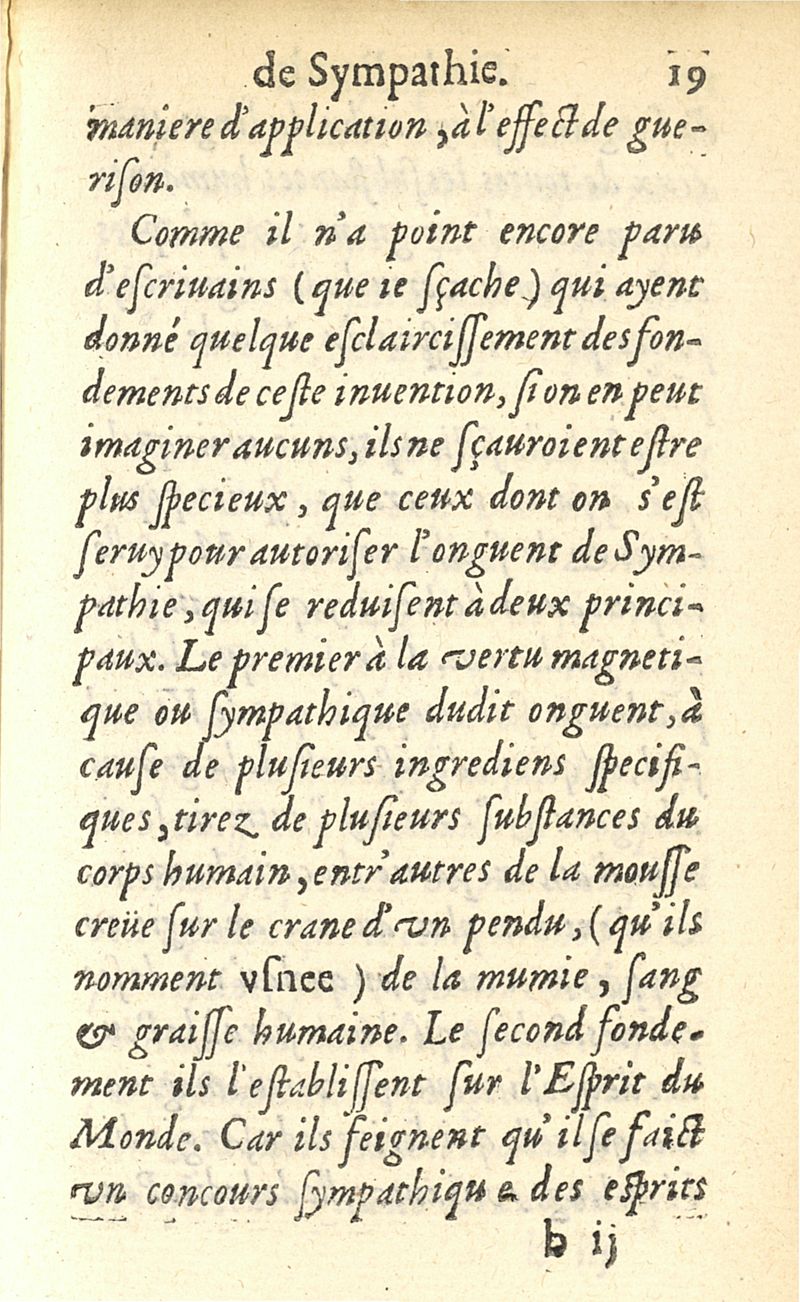 de Sympathie. 19
maniere d'application, à l'effect de gue-
riſon.
Comme il n'a point encore paru
d'eſcriuains (que ie ſçache) qui ayent
donné quelque eſclairciſſement des fon-
dements de ceſte inuention, ſi on en peut
imaginer aucuns, ils ne ſçauroient eſtre
plus ſpecieux, que ceux dont on s'eſt
ſeruy pour autoriſer l'onguent de Sym-
pathie, qui ſe reduiſent à deux princi-
paux. Le premier à la vertu magneti-
que ou ſympathique dudit onguent, à
cauſe de pluſieurs ingrediens ſpecifi-
ques, tirez de pluſieurs ſubſtances du
corps humain, entr'autres de la mouſſe
creüe ſur le crane d'vn pendu, (qu'ils
nomment vſnee) de la mumie, ſang
& graiſſe humaine. Le ſecond fonde-
ment ils l'eſtabliſſent ſur l'Eſprit du
Monde. Car ils feignent qu'il ſe faict
vn concours ſympathique des eſprits
b ij